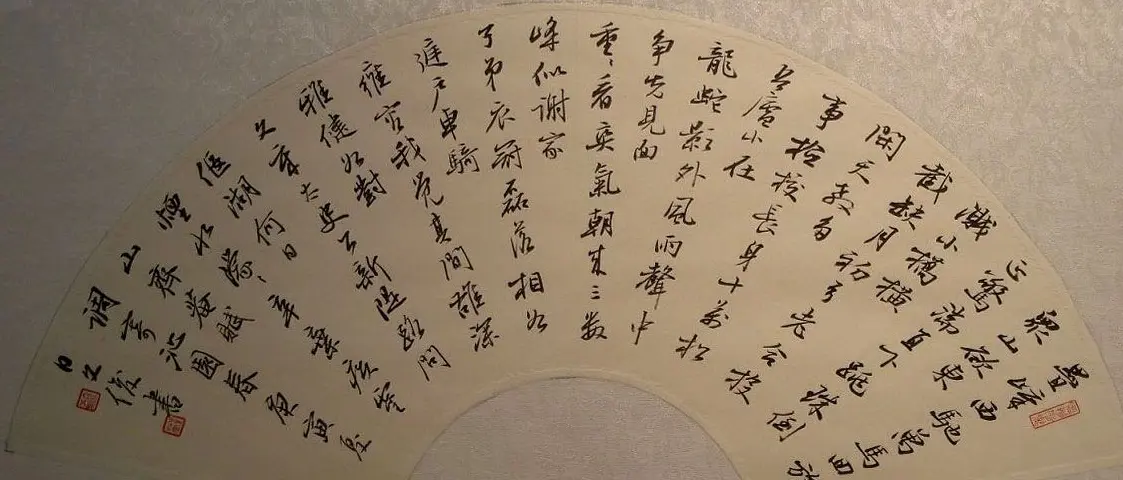 疊嶂西馳萬馬回旋
眾山欲東
正驚湍直下跳珠倒
濺小橋橫
截缺月初弓老合投
閑天教多
事檢校長身十萬松
吾廬小在
龍蛇影外風雨聲中
争先見面
重重看爽氣朝來三數
峰似謝家
子弟衣冠磊落相如
庭户車騎
雍容我覺其間雄深
雅健如對
文章太史公新堤路問
偃湖何日
煙水濛濛辛棄疾靈
山齊菴賦
調寄沁園春庚寅夏
俊書